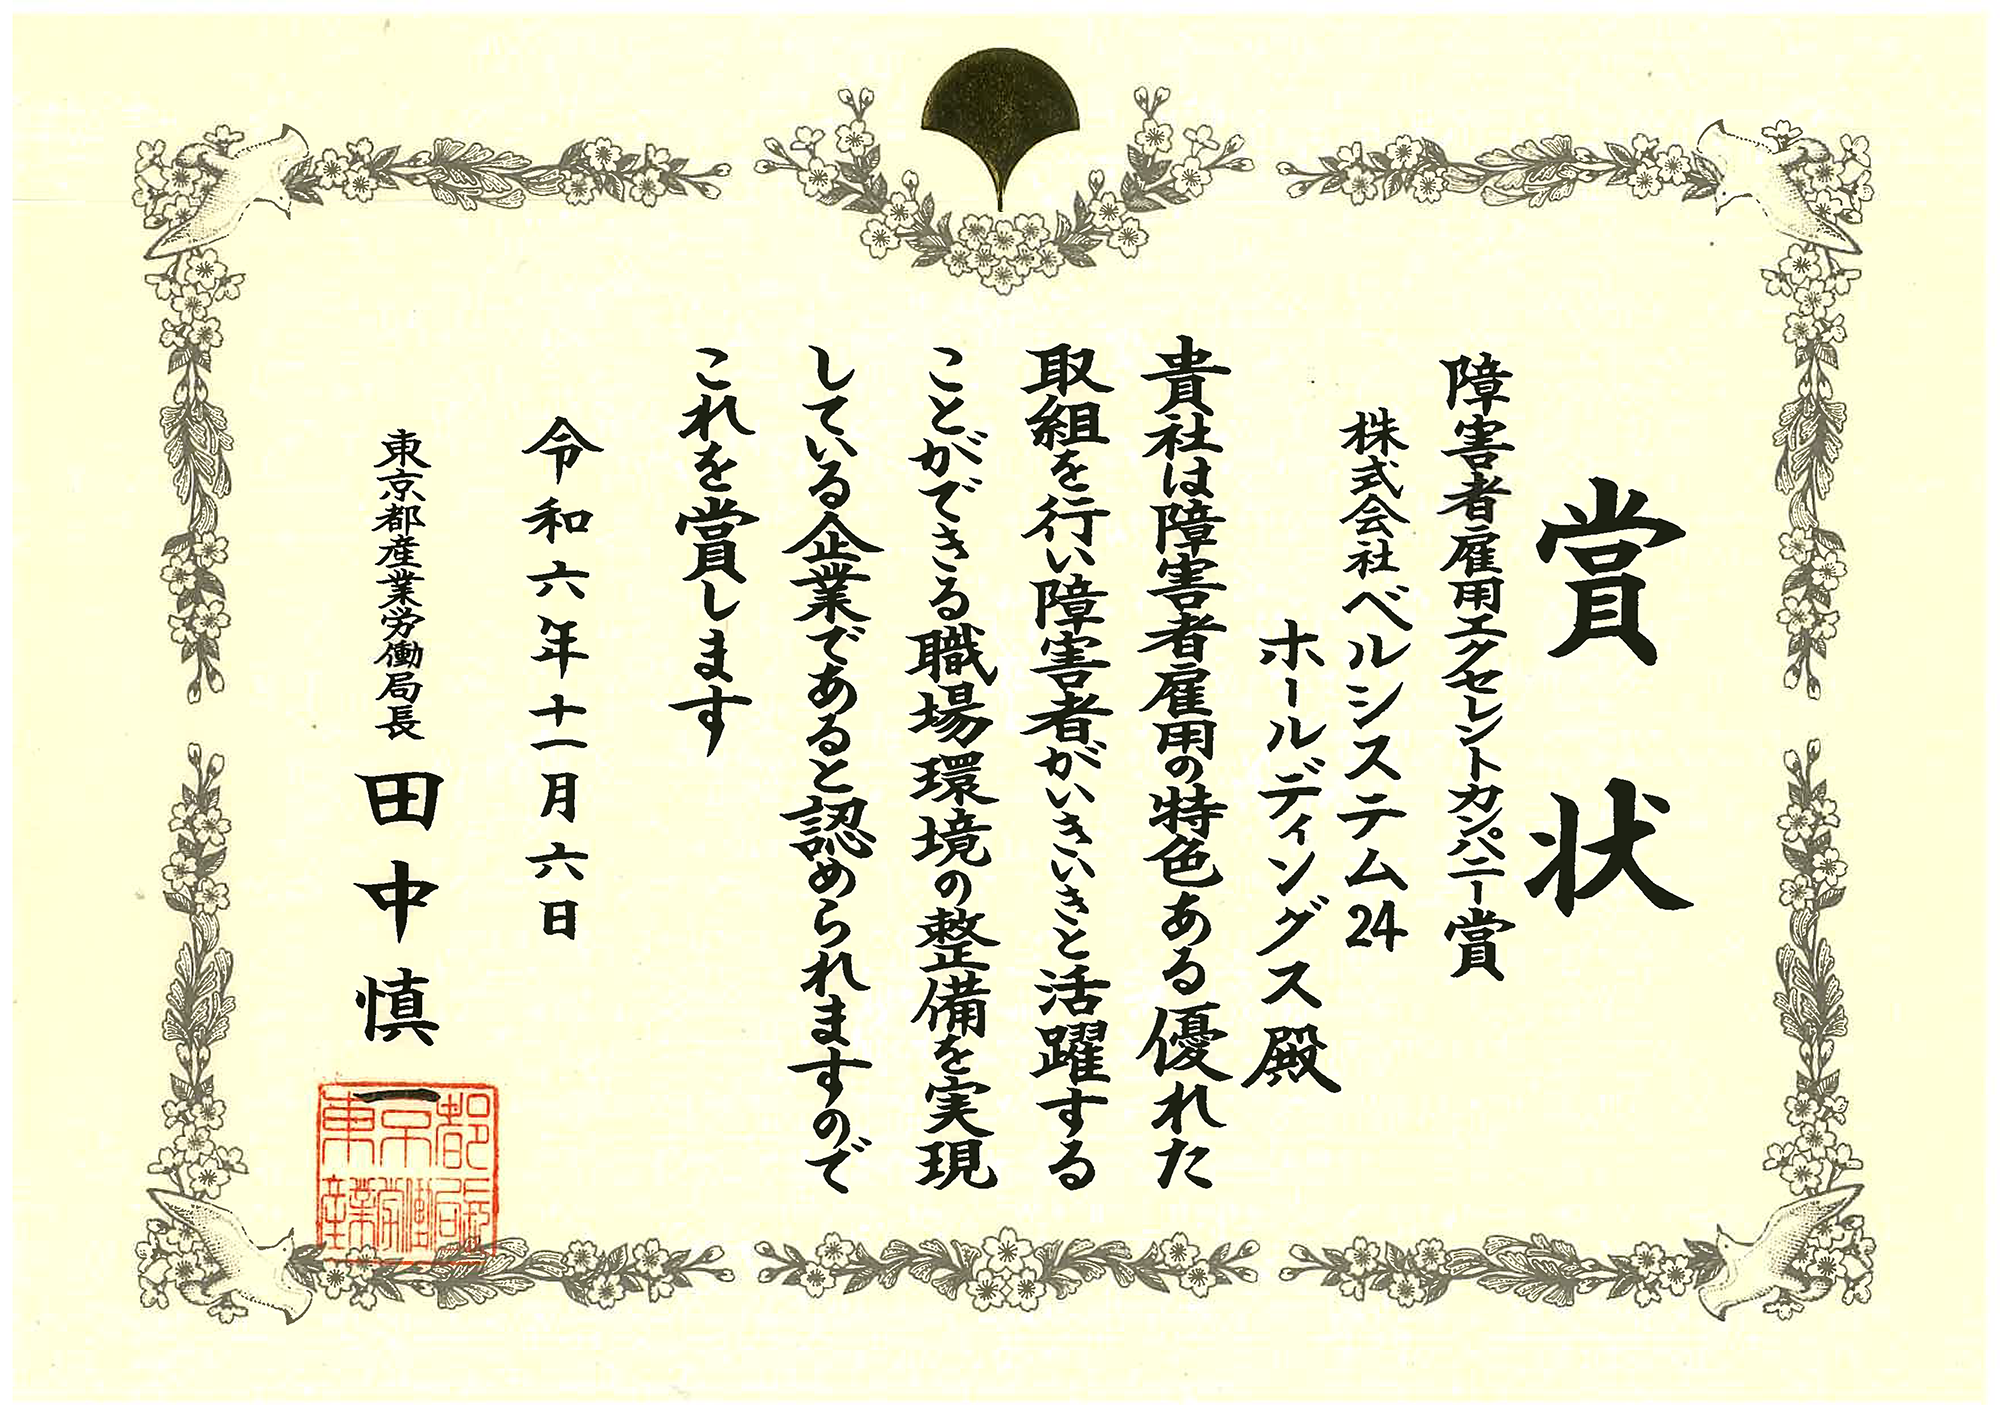 賞状
障害者雇用エクセレントカンパニー賞
株式会社ベルシステム24
ホールディングス殿
貴社は障害者雇用の特色ある優れた
取組を行い障害者がいきいきと活躍する
ことができる職場環境の整備を実現
している企業であると認められますので
これを賞します
令和六年十一月六日
東京都産業労働局長 田中慎一
東京都
産業労働局長